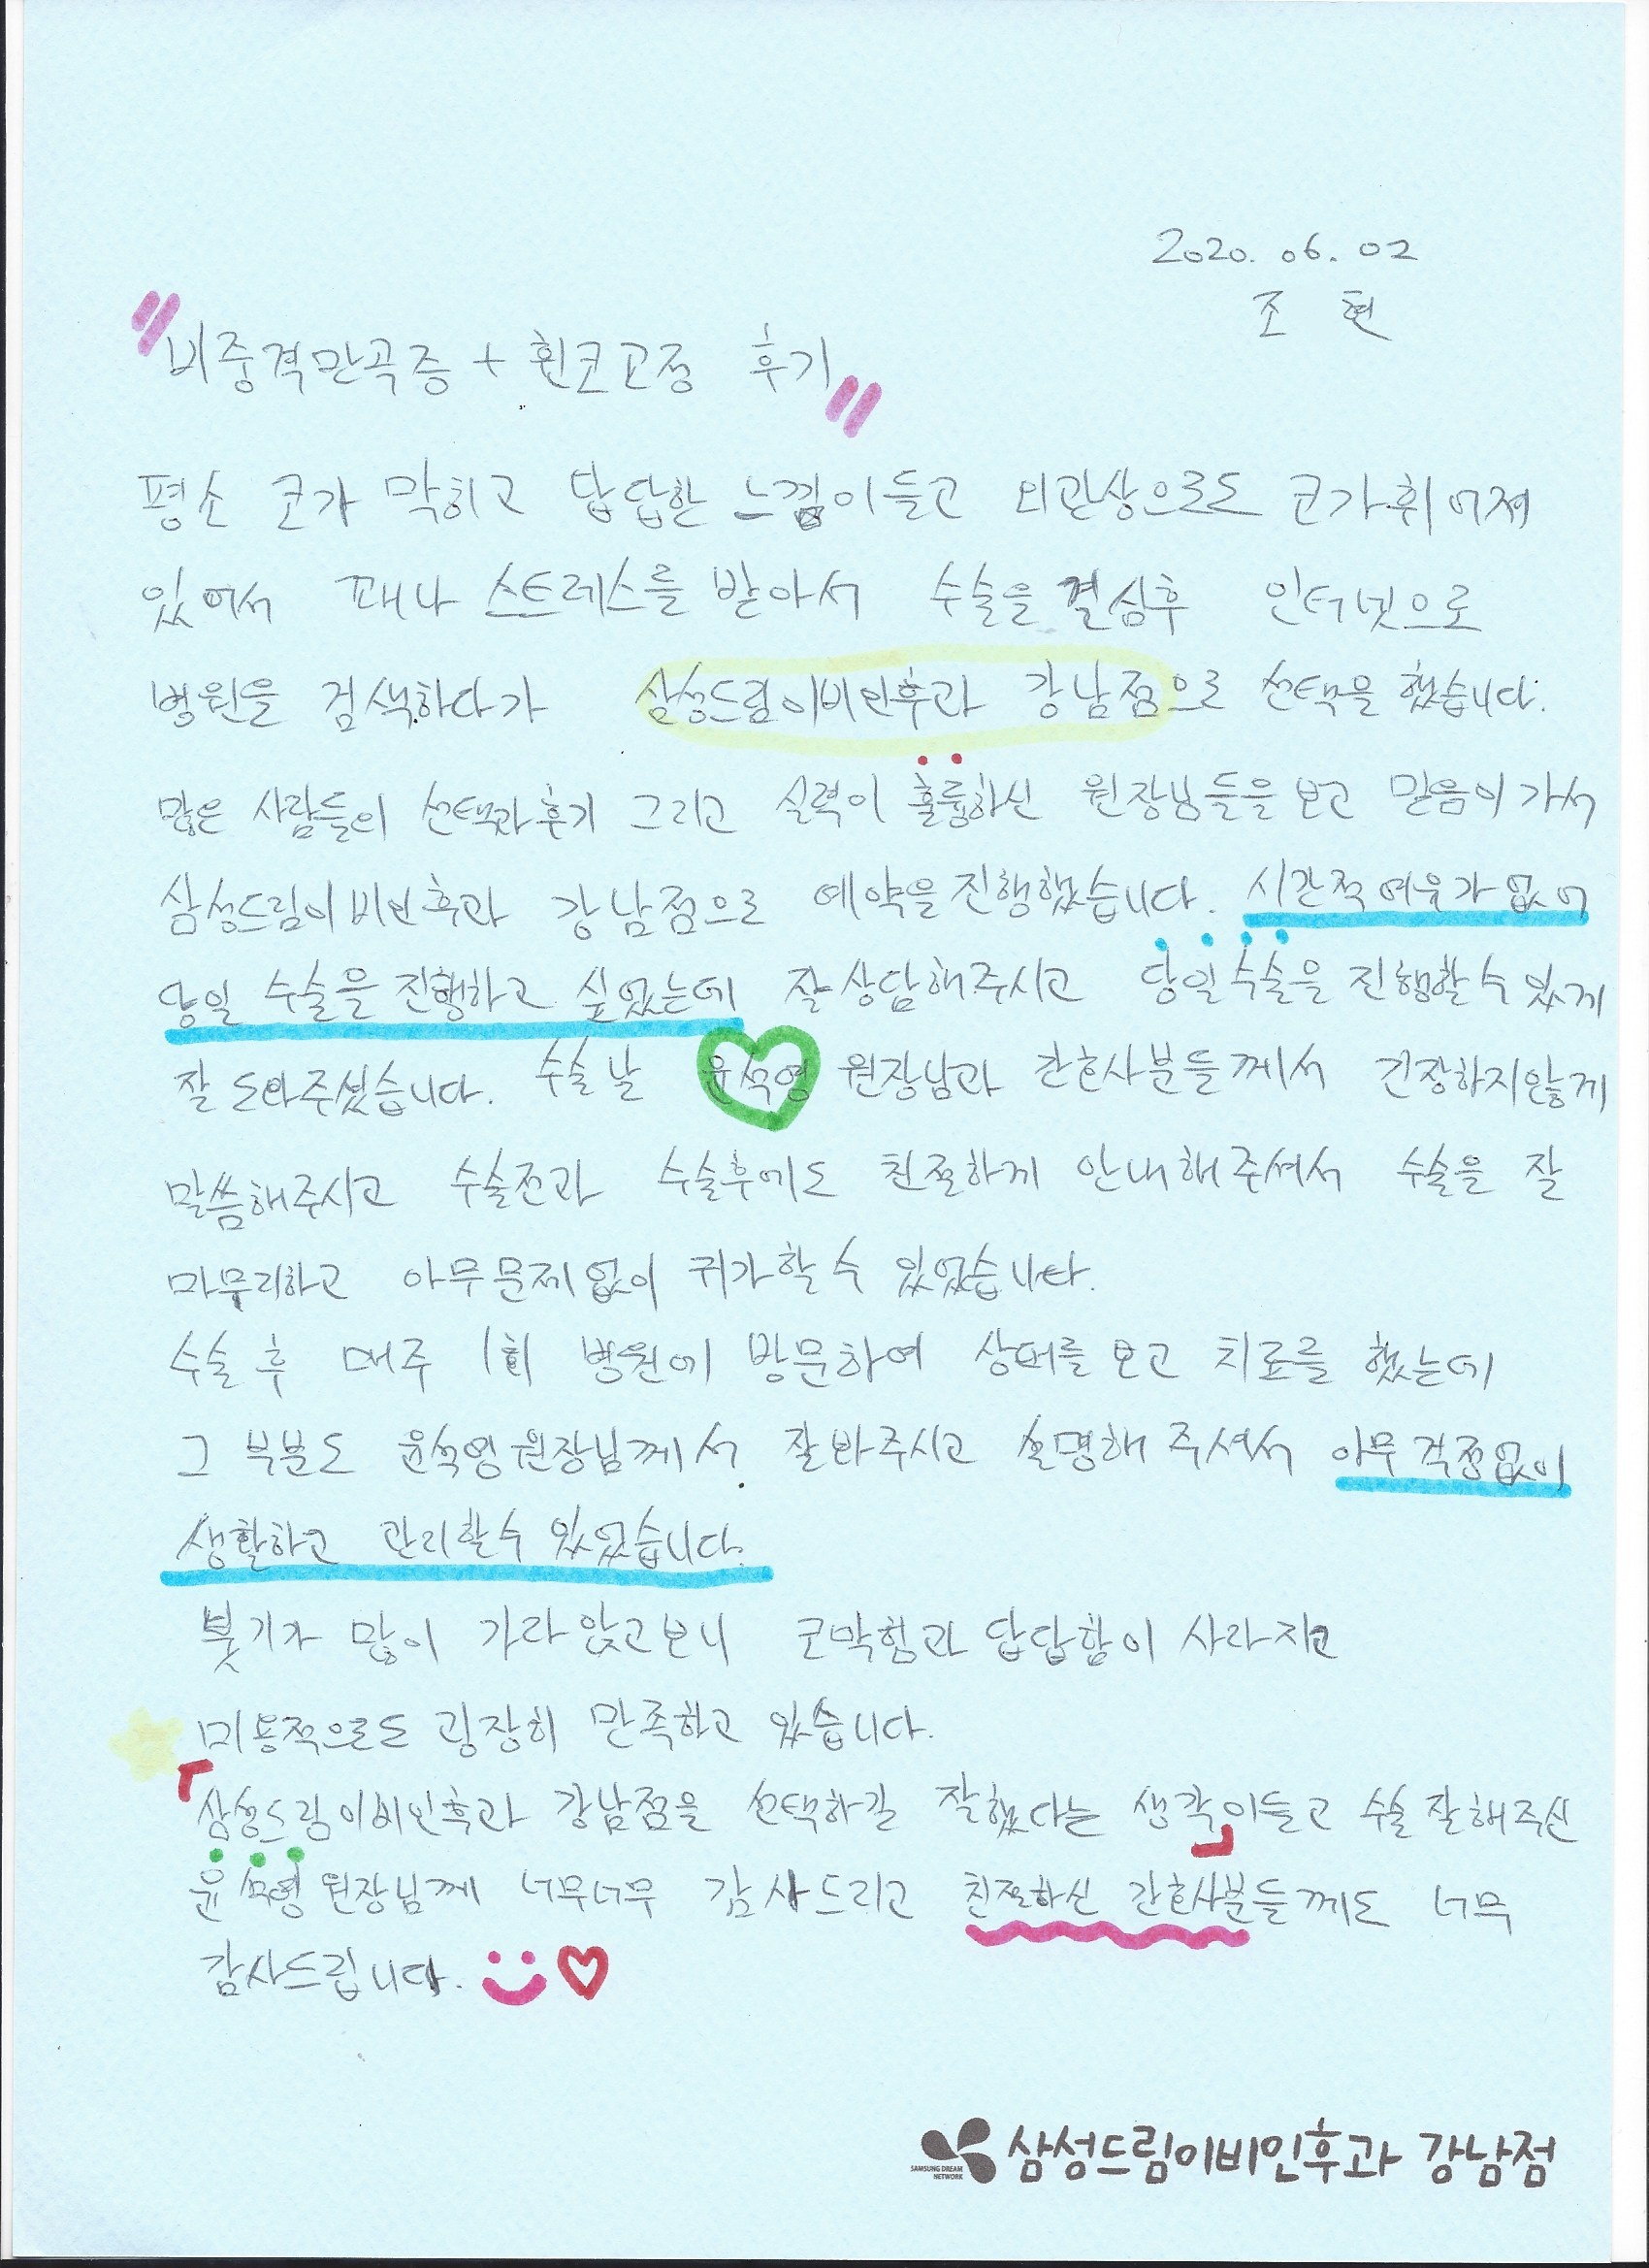 2020. 06. 02
조 현
"비중격만곡증 + 휜코교정 후기"
평소 코가 막히고 답답한 느낌이들고 외관상으로도 코가휘어져
있어서 꽤나 스트레스를 받아서 수술을 결심후 인터넷으로
병원을 검색하다가 삼성드림이비인후과 강남점으로 선택을 했습니다.
많은 사람들의 선택과후기 그리고 실력이 훌륭하신 원장님들을 보고 믿음이가서
삼성드림이비인후과 강남점으로 예약을 진행했습니다. 시간적 여유가 없어
당일 수술을 진행하고 싶었는데 잘 상담해주시고 당일 수술을 진행할 수 있게
잘 도와주셨습니다. 수술날 윤석영 원장님과 간호사분들께서 긴장하지않게
말씀해주시고 수술전과 수술후에도 친절하게 안내해주셔서 수술을 잘
마무리하고 아무문제없이 귀가할 수 있었습니다.
수술 후 매주 1회 병원에 방문하여 상처를 보고 치료를 했는데
그 부분도 윤석영원장님께서 잘봐주시고 설명해 주셔서 아무 걱정없이
생활하고 관리할수 있었습니다.
붓기가 많이 가라앉고보니 코막힘과 답답함이 사라지고
미용적으로도 굉장히 만족하고 있습니다.
「삼성드림이비인후과 강남점을 선택하길 잘했다는 생각」이들고 수술 잘해주신
윤석영 원장님께 너무너무 감사드리고 친절하신 간호사분들께도 너무
감사드립니다.
SAMSUNG DREAM
NETWORK
삼성드림이비인후과 강남점